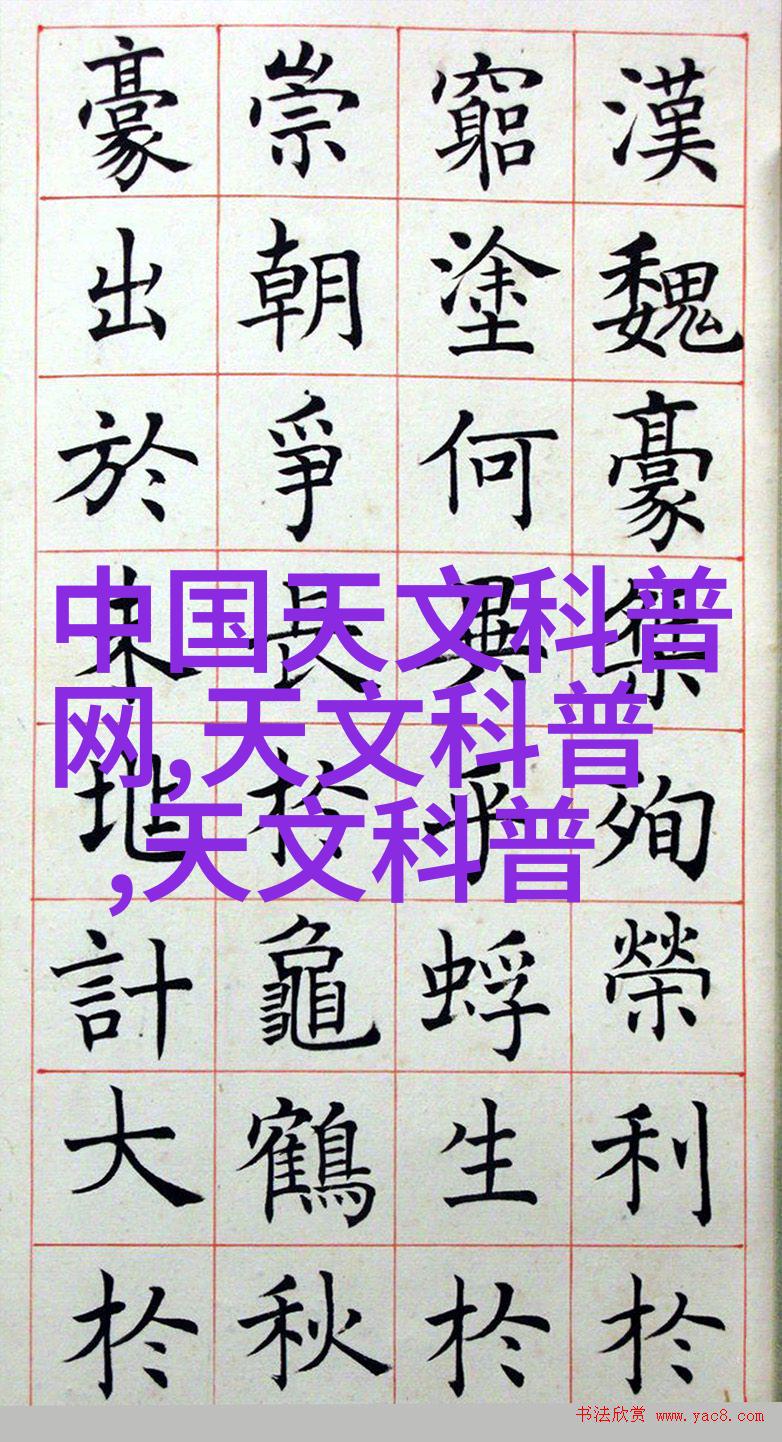 漢魏豪傑殉榮利於
窮塗何異乎蜉生於
崇朝爭長於龜鶴秋
豪出於末地計大於
中国天文科普
网,天文科普
,天文科普
书法欣赏 www.yac8.com